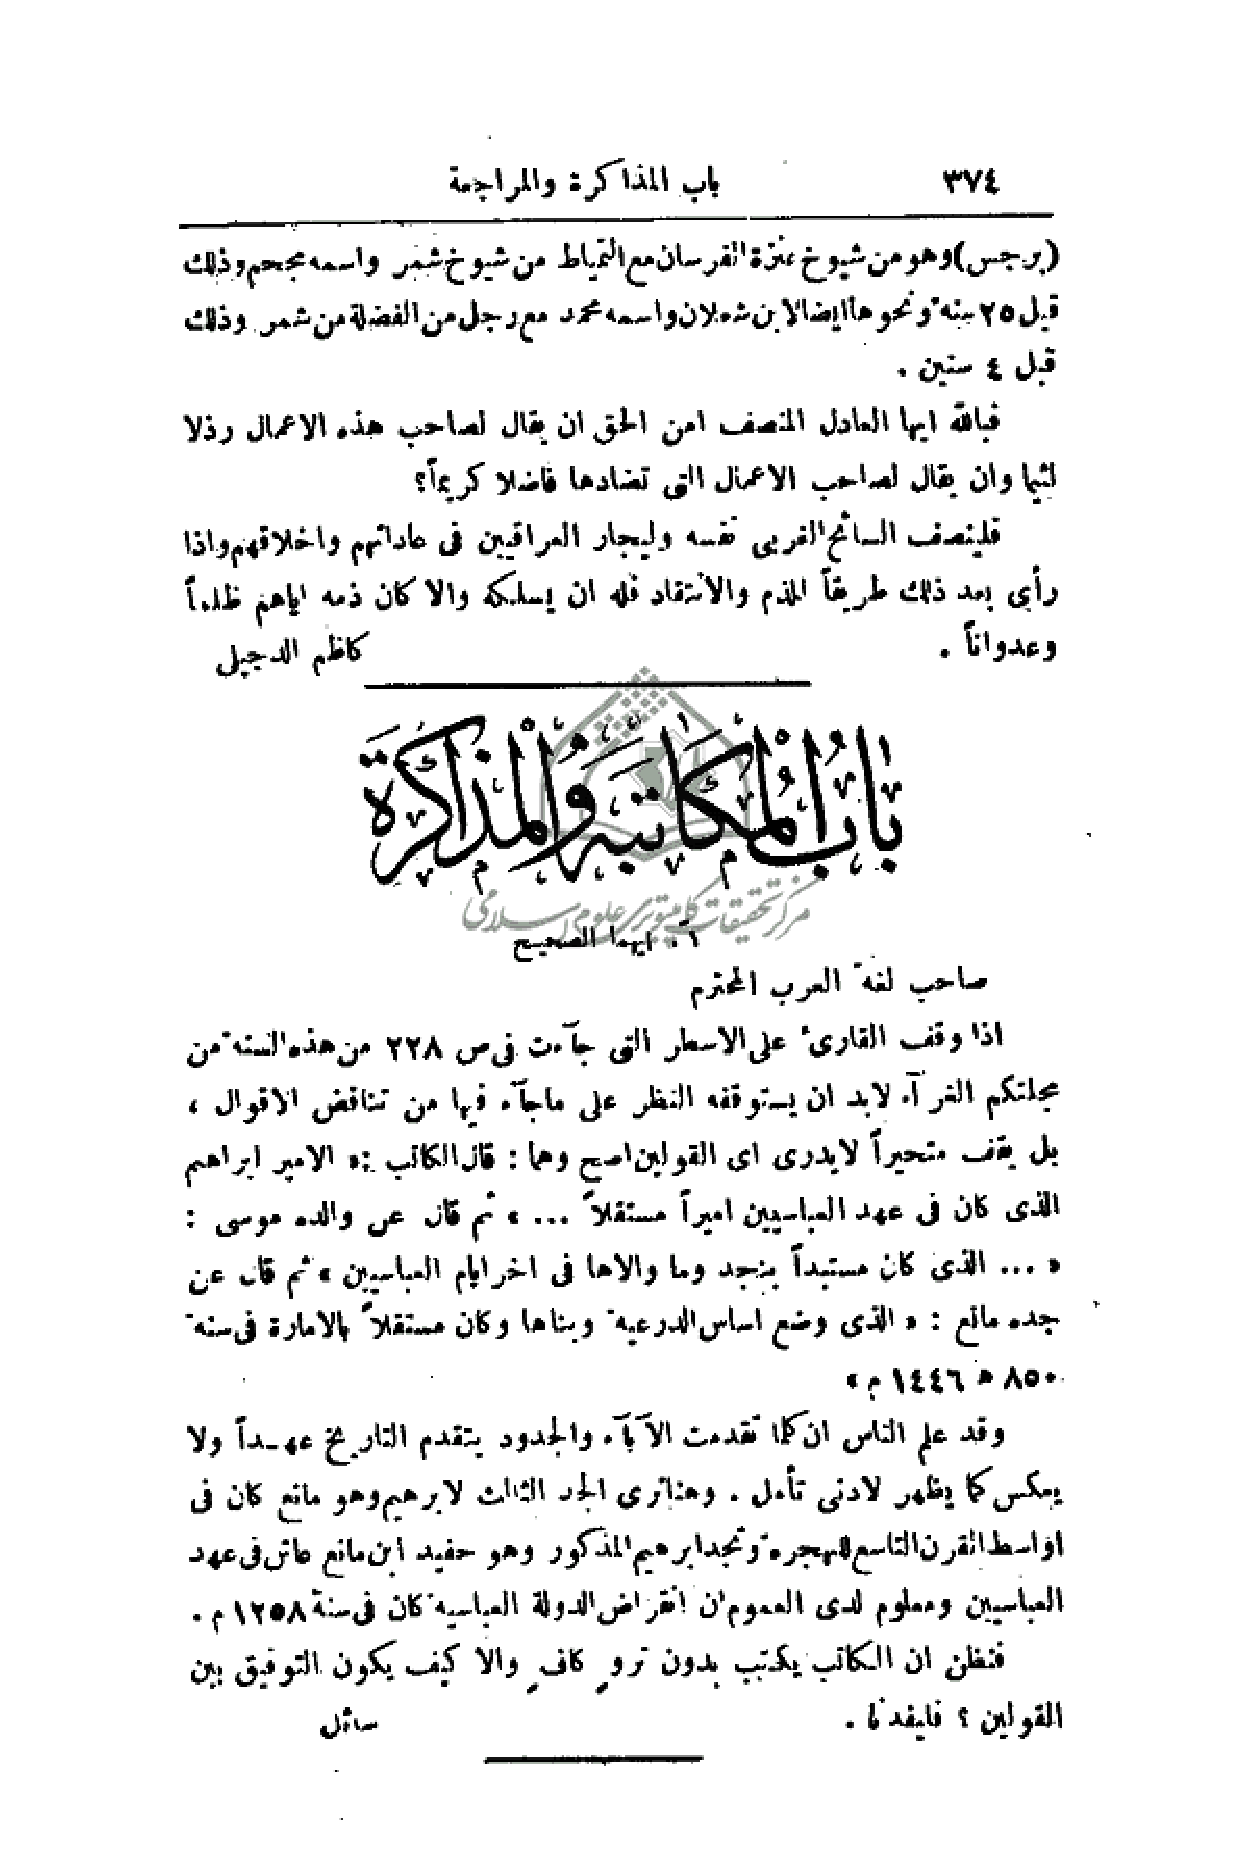 ٣٧٤ باب المذاكرة والمراجعة
(برجس) وهو من شيوخ عنزة الفرسان مع التمياط من شيوخ شمر واسمه مجحم وذلك
قبل ٢٥ سنة ونحوها ايضا لابن شعلان واسمه محمد مع رجل من الفضلة من شمر وذلك
قبل ٤ سنين .
فبالله ايها العادل المنصف امن الحق ان يقال لصاحب هذه الاعمال رذلا
لئيما وان يقال لصاحب الاعمال التى تضادها فاضلا كريماً؟
فلينصف السائح الغربى نفسه وليجار العراقيين فى عاداتهم واخلاقهم واذا
رأى بعد ذلك طريقاً للذم والانتقاد فله ان يسلكه والا كان ذمه اياهم ظلماً
وعدواناً . كاظم الدجيلى
بابُ المُكاتبة وَالمُذاكَرَة
مركز تحقيقات كامپيوترى علوم اسلامى
١ . ايهما الصحيح
صاحب لغة العرب المحترم
اذا وقف القارئ على الاسطر التى جآءت فى ص ٢٢٨ من هذه السنة من
مجلتكم الغرآء لابد ان يستوقفه النظر على ماجآء فيها من تناقض الاقوال ،
بل يقف متحيراً لايدرى اى القولين اصح وهما : قال الكاتب : « الامير ابراهيم
الذى كان فى عهد العباسيين اميراً مستقلاً ... » ثم قال عن والده موسى :
« ... الذى كان مستبداً بنجد وما والاها فى اخر ايام العباسيين » ثم قال عن
جده مانع : « الذى وضع اساس الدرعية وبناها وكان مستقلاً بالامارة فى سنة
٨٥٠ ه ١٤٤٦ م »
وقد علم الناس ان كلما تقدمت الآبآء والجدود يتقدم التاريخ عهـداً ولا
يعكس كما يظهر لادنى تأمل . وهنا نرى الجد الثالث لابرهيم وهو مانع كان فى
اواسط القرن التاسع للهجرة ونجد ابرهيم المذكور وهو حفيد ابن مانع عاش فى عهد
العباسيين ومعلوم لدى العموم ان انقراض الدولة العباسية كان فى سنة ١٢٥٨ م .
فنظن ان الكاتب يكتب بدون تروٍ كافٍ والا كيف يكون التوفيق بين
القولين ؟ فليفدنا . سائل